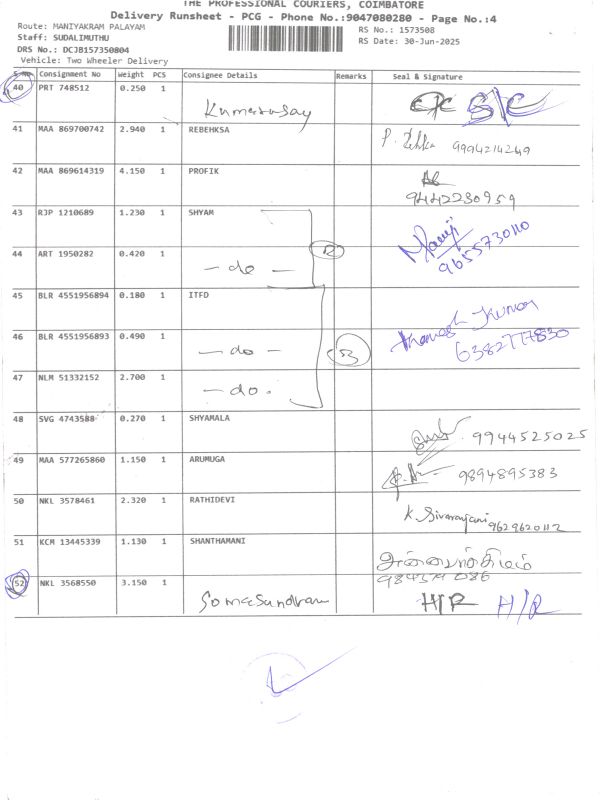 THE PROFESSIONAL COURIERS, COIMBATORE
Delivery Runsheet - PCG - Phone No.:9047080280 - Page No.:4
Route: MANIYAKRAM PALAYAM
RS No.: 1573508
Staff: SUDALIMUTHU
RS Date: 30-Jun-2025
DRS No.: DCJB157350804
Vehicle: Two Wheeler Delivery
S No Consignment No Weight PCS Consignee Details Remarks Seal & Signature
40 PRT 748512 0.250 1 S/C
41 MAA 869700742 2.940 1 REBEHKSA 9994214249
42 MAA 869614319 4.150 1 PROFIK 9442230959
43 RJP 1210689 1.230 1 SHYAM 9655730110
44 ART 1950282 0.420 1 - do -
45 BLR 4551956894 0.180 1 ITFD
46 BLR 4551956893 0.490 1 - do - 6382777830
47 NLM 51332152 2.700 1 - do.
48 SVG 4743588 0.270 1 SHYAMALA 9944525025
49 MAA 577265860 1.150 1 ARUMUGA 9894895383
50 NKL 3578461 2.320 1 RATHIDEVI K. Sivaranjani 9629620112
51 KCM 13445339 1.130 1 SHANTHAMANI
52 NKL 3568550 3.150 1 Somasundram H/R H/R